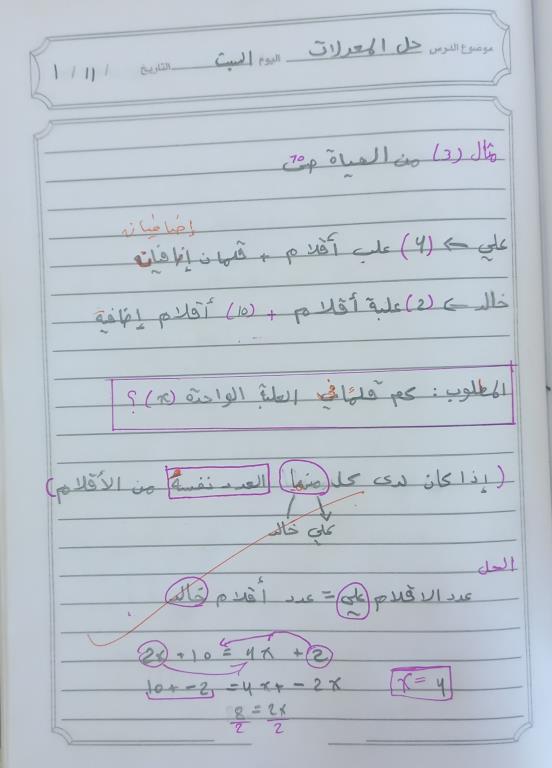 موضوع الدرس حل المعدلات اليوم السبت التاريخ / 11 / 1
مثال (3) من الحياة ص 70
إضافيان
علي ← (4) علب أقلام + قلمان إضافيان
خالد ← (2) علبة أقلام + (10) أقلام إضافية
المطلوب : كم قلمًا في العلبة الواحدة (x) ؟
(إذا كان لدى كل منهما العدد نفسه من الأقلام)
علي خالد
الحل
عدد الاقلام علي = عدد أقلام خالد
2x + 10 = 4x + 2
10 + -2 = 4x + - 2x
x = 4
8 = 2x
2 2